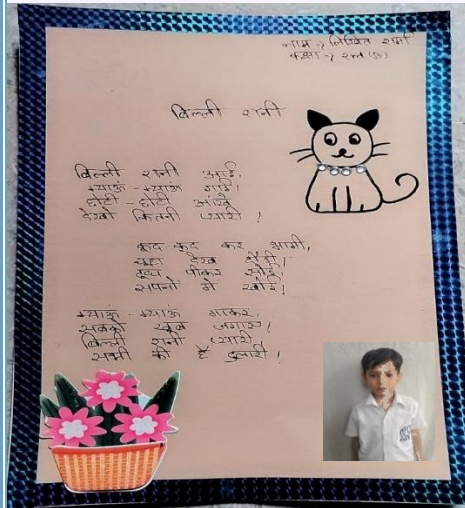 नाम → लिखित शर्मा
कक्षा →
बिल्ली रानी
बिल्ली रानी आई,
म्याऊं - म्याऊं गाई।
छोटी - छोटी आंखें
देखो कितनी प्यारी !
कूद - कूद कर आगी,
चूहा देख दौड़ी।
दूध पीकर सोई,
सपनो में खोई।
म्याऊं - म्याऊं गाकर,
सबको खूब जगाए।
बिल्ली रानी प्यारी
सभी की है दुलारी।